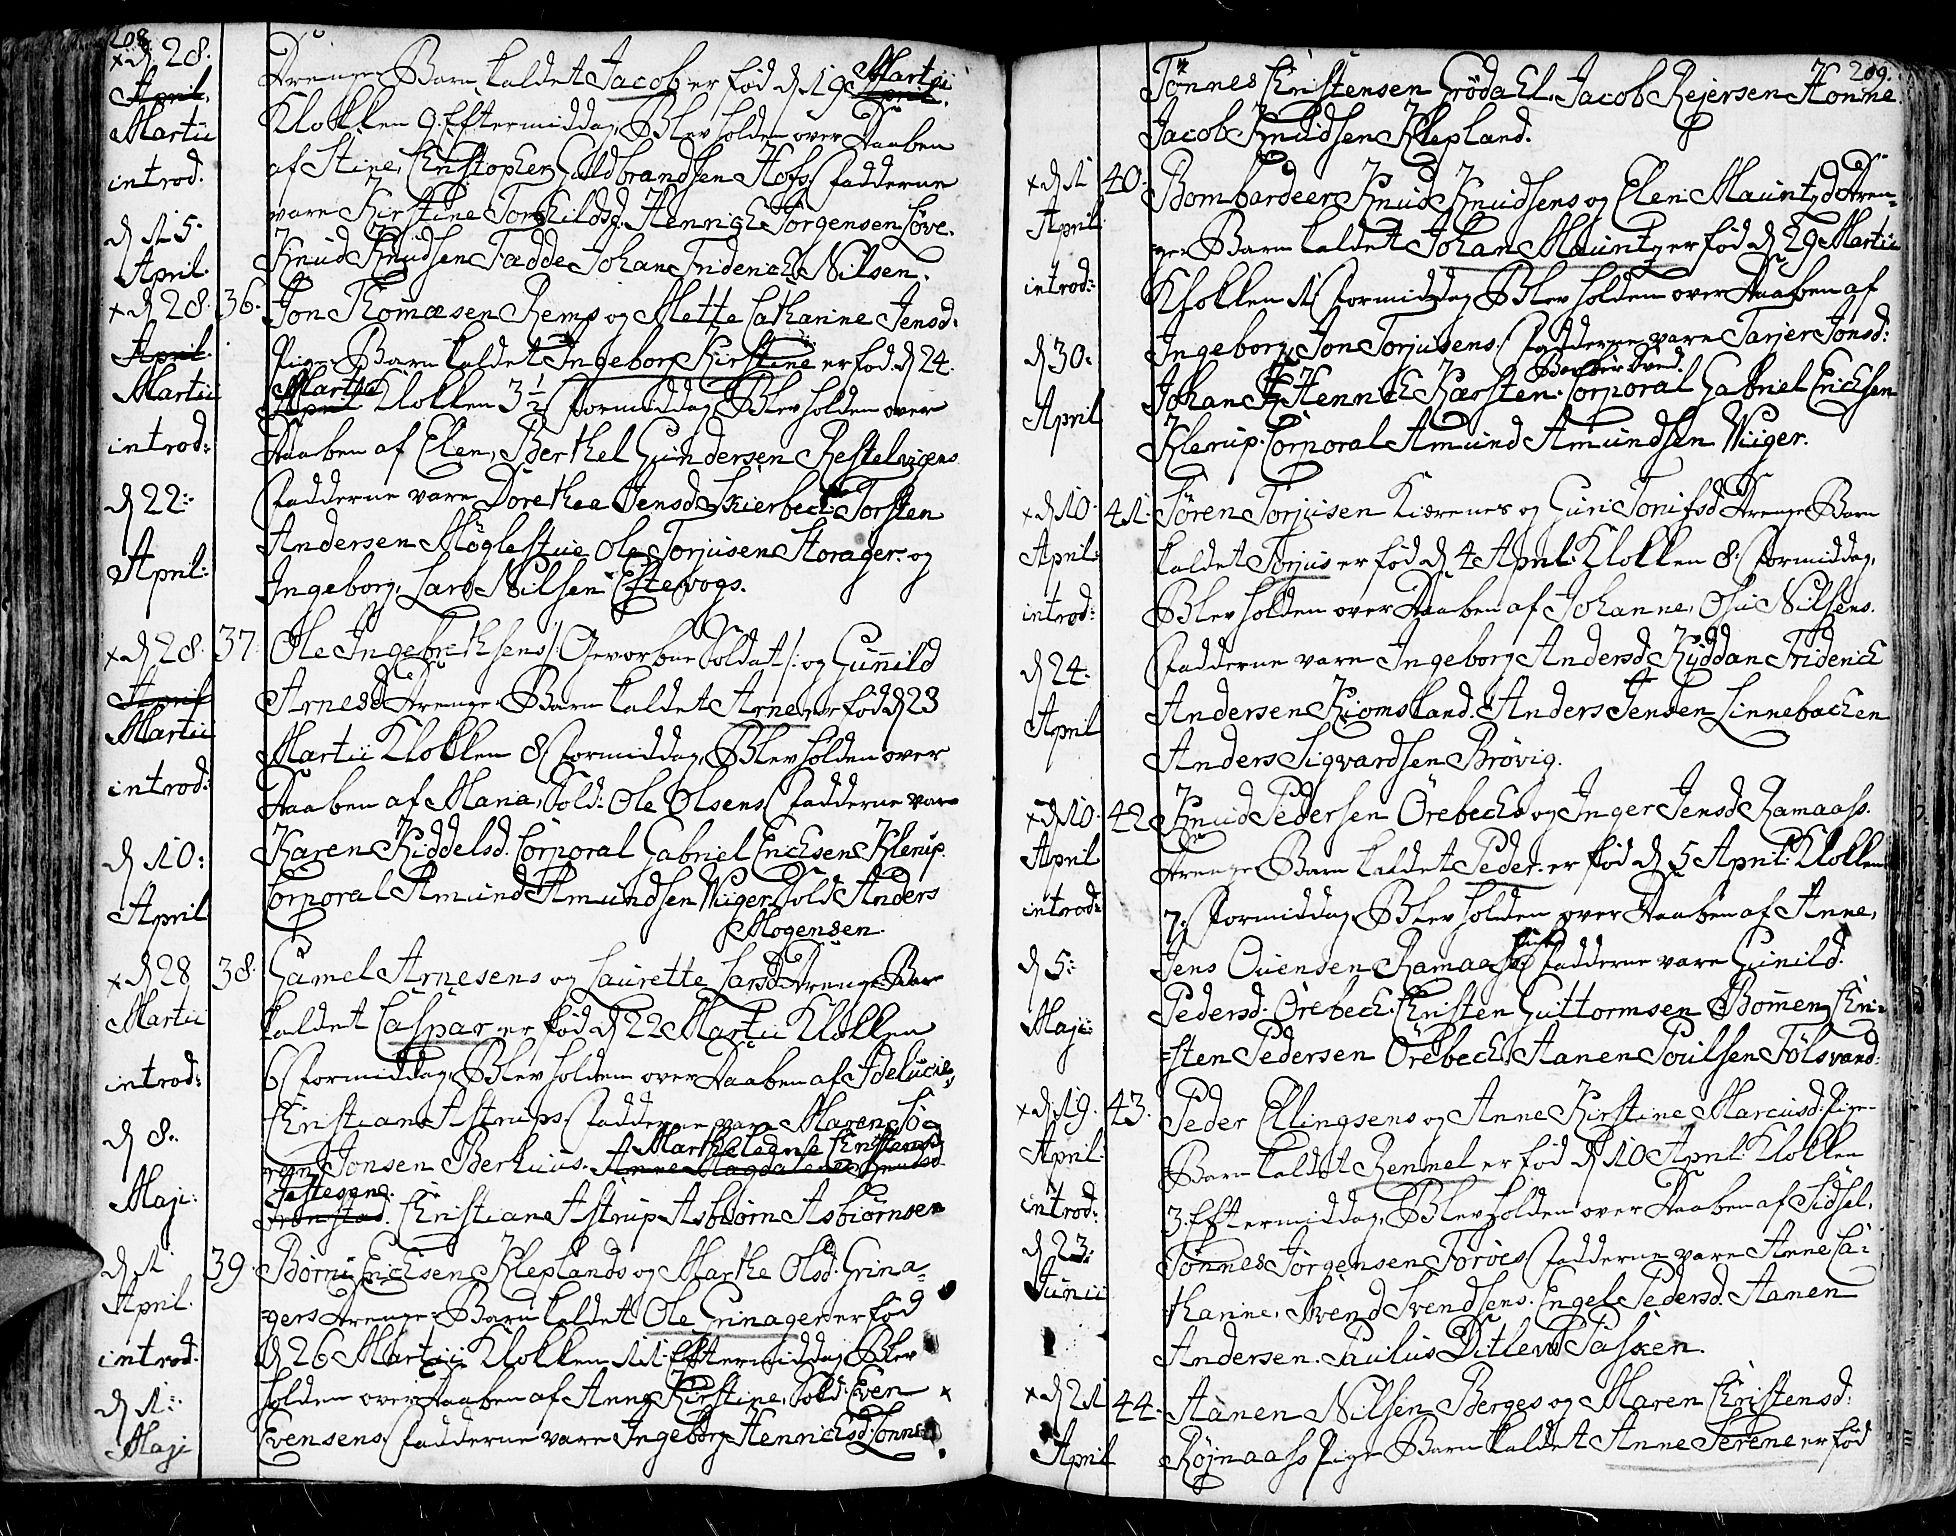 208.
x d 28.
April.
Martii
introd.
d 15.
April.
Drenge Barn kaldet Jacob er fød d 19 April. Martii
Klokken 9. Eftermiddag, Blev holden over Daaben
af Stine, Christopher Guldbrandsen Hofs, Fadderne
vare Kirstine Torkildsd. Hennich Jørgensen Løve.
Knud Knudsen Fadde Johan Friderich Nilsen.
x d 28. 36.
April.
Martii
introd:
d 22:
April:
Jon Thomæsen Remp og Mette Catharine Jensd:
Pige Barn kaldet Ingeborg Kirstine er fød d 24.
Martii
April Klokken 3½ Formiddag, Blev holden over
Daaben af Elen, Berthel Gundersen Restelvigens
Fadderne vare Dorethea Jensd Skierbeck: Torsten
Andersen Møglestue, Ole Torjusen Storager: og
Ingeborg, Lars Nilsen Eftevogs.
x d 28. 37.
April
Martii
introd:
d 10:
April
Ole Ingebrethsens /: Gevorbne Soldat /: og Gunnild
Arnesd Drenge Barn kaldet Arne er fød d 23
Martii Klokken 8 Formiddag, Blev holden over
Daaben af Maria, Sold: Ole Olsens, Fadderne vare
Karen Kiddelsd. Corporal Gabriel Erichsen Klerup.
Corporal Amund Amundsen Wiiger, Sold: Anders
Mogensen.
x d 28 38.
Martii
introd:
d 8:
Maji:
Gamel Arnesens og Laurette Larsd. Drenge Barn
kaldet Caspar er fød d 22 Martii Klokken
6 Formiddag, Blev holden over Daaben af Adelucie,
Christian Astrups, Fadderne vare Maren Sø-
ren Jonsen Berhuus. Anne Magdalene Knudsd
Marthe Lægnse Christensd
Jestesane.
Trønstad. Christian Astrup Asbiørn Asbiørnsen
d 1 39.
April.
introd:
d 1:
Maji
Børni Erichsen Kleplands og Marthe Olsd. Grina-
gers Drenge Barn kaldet Ole Grinager er fød
d 26 Martii Klokken 11 Eftermiddag, Blev
holden over Daaben af Anne Kirstine, Sold: Even
Evensens, Fadderne vare Ingeborg Hennichsd. Honne
209.
Tønnes Christensen Grødæl, Jacob Rejersen Honne.
Jacob Knudsen Klepland.
x d 1 40.
April
introd:
d 30:
April
Bombardeer Knud Knudsens og Elen Mauntzd Dren-
ge Barn kaldet Johan Mauntz er fød d 29 Martii
Klokken 1 Formiddag, Blev holden over Daaben af
Ingeborg, Jon Torjusens. Fadderne vare Tarjer Jonsd:
Johan Hennich Karsten. Corporal Gabriel Erichsen
Klerup. Corporal Amund Amundsen Wiiger.
x d 10. 41.
April:
introd:
d 24.
April
Søren Torjusen Kiærenes og Guri Tonifsd Drenge Barn
kaldet Torjus er fød d 4 April: Klokken 8. Formiddag,
Blev holden over Daaben af Johanne, Osu Nilsens.
Fadderne vare Ingeborg Andersd. Kyddan Friderich
Andersen Kiomsland. Anders Jensen Linnebacken
Anders Sigvardsen Brøvig.
x d 10. 42.
April
introd:
d 5:
Maji:
Knud Pedersen Ørebechs og Inger Jensd. Ramaass.
Drenge Barn kaldet Peder er fød d 5 April: Klokken
7. Formiddag, Blev holden over Daaben af Anne,
Jens Ouensen Ramaass. Fadderne vare Gunild
Pedersd. Ørebech. Christen Guttormsen Bomen, Chri-
sten Pedersen Ørebech. Aanen Poulsen Følsvand.
x d 19. 43.
April:
introd:
d 23:
Junii
Peder Ellingsens og Anne Kirstine Marcusd: Pige
Barn kaldet Remmel er fød d 10 April: Klokken
3. Eftermiddag, Blev holden over Daaben af Sidsel,
Tønnes Jørgensen Torøes Fadderne vare Anne Ca-
tharine, Svend Svendsens. Engel Pedersd. Aanen
Andersen. Paulus Ditlev Pasken.
x d 21 44.
April
Aanen Nilsen Berges og Maren Christensd:
Røjnaass Pige Barn kaldet Anne Serene er fød